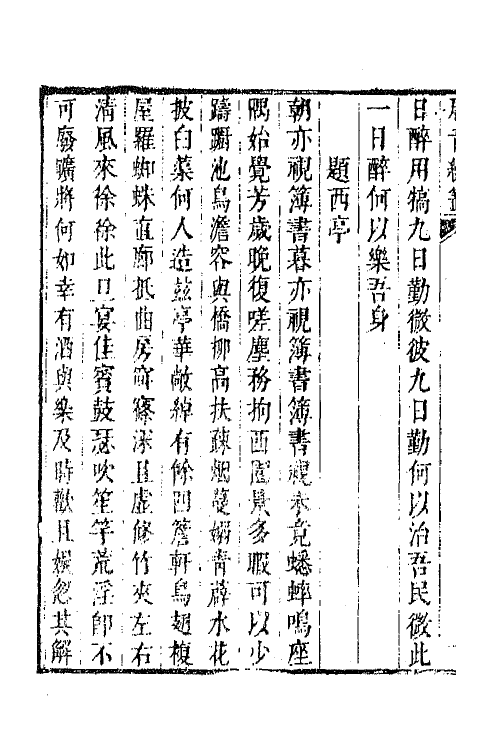 唐音統籤
日醉用犒九日勤微彼九日勤何以治吾民微此
一日醉何以樂吾身
題西亭
朝亦視簿書暮亦視簿書簿書視未竟蟋蟀鳴座
隅始覺芳歲晚復嗟塵務拘西園景多暇可以少
躊躇池鳥澹容與橋柳高扶疎烟蔓嫋青薜水花
披白蕖何人造茲亭華敞綽有餘四簷軒鳥翅複
屋羅蜘蛛直廊抵曲房窅窱深且虛脩竹夾左右
清風來徐徐此且宴佳賓鼓瑟吹笙竽荒淫卽不
可廢曠將何如幸有酒與樂及時歡且娛忽其解